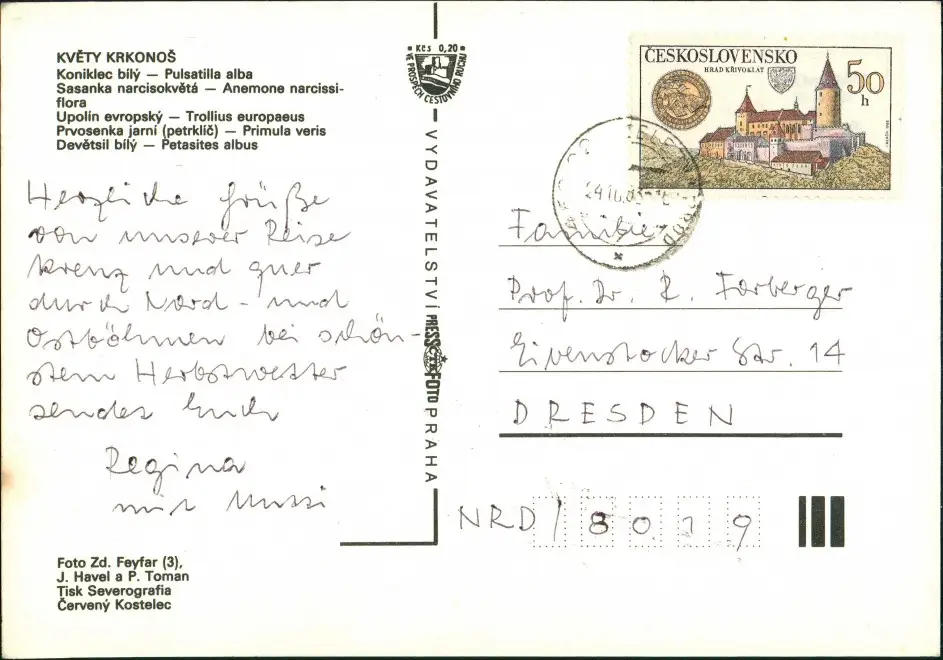 KVĚTY KRKONOŠ
Koniklec bílý — Pulsatilla alba
Sasanka narcisokvětá — Anemone narcissi-
flora
Upolín evropský — Trollius europaeus
Prvosenka jarní (petrklíč) — Primula veris
Devětsil bílý — Petasites albus
Herzliche Grüße
von unserer Reise
kreuz und quer
durch Nord- und
Ostböhmen bei schön-
stem Herbstwetter
sendet Euch
Regina
mit Mussi
Foto Zd. Feyfar (3),
J. Havel a P. Toman
Tisk Severografia
Červený Kostelec
Kčs 0,20
VE PROSPĚCH CESTOVNÍHO RUCHU
VYDAVATELSTVÍ PRESSFOTO PRAHA
ČESKOSLOVENSKO
HRAD KŘIVOKLÁT
50
h
Familie
Prof. Dr. R. Forberger
Eibenstocker Str. 14
DRESDEN
NRD/8019